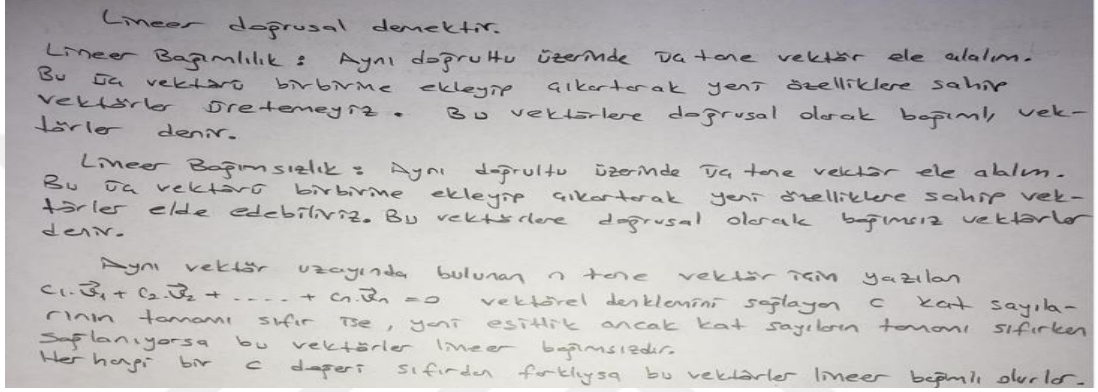 Lineer doğrusal demektir.
Lineer Bağımlılık : Aynı doğrultu üzerinde üç tane vektör ele alalım.
Bu üç vektörü birbirine ekleyip çıkartarak yeni özelliklere sahip
vektörler üretemeyiz. Bu vektörlere doğrusal olarak bağımlı vek-
törler denir.
Lineer Bağımsızlık : Aynı doğrultu üzerinde üç tane vektör ele alalım.
Bu üç vektörü birbirine ekleyip çıkartarak yeni özelliklere sahip vek-
törler elde edebiliriz. Bu vektörlere doğrusal olarak bağımsız vektörler
denir.
Aynı vektör uzayında bulunan n tane vektör için yazılan
c₁.v⃗₁ + c₂.v⃗₂ + ..... + cn.v⃗n = 0 vektörel denklemini sağlayan c kat sayıla-
rının tamamı sıfır ise, yani eşitlik ancak kat sayıların tamamı sıfırken
sağlanıyorsa bu vektörler lineer bağımsızdır.
Her hangi bir c değeri sıfırdan farklıysa bu vektörler lineer bağımlı olurlar.